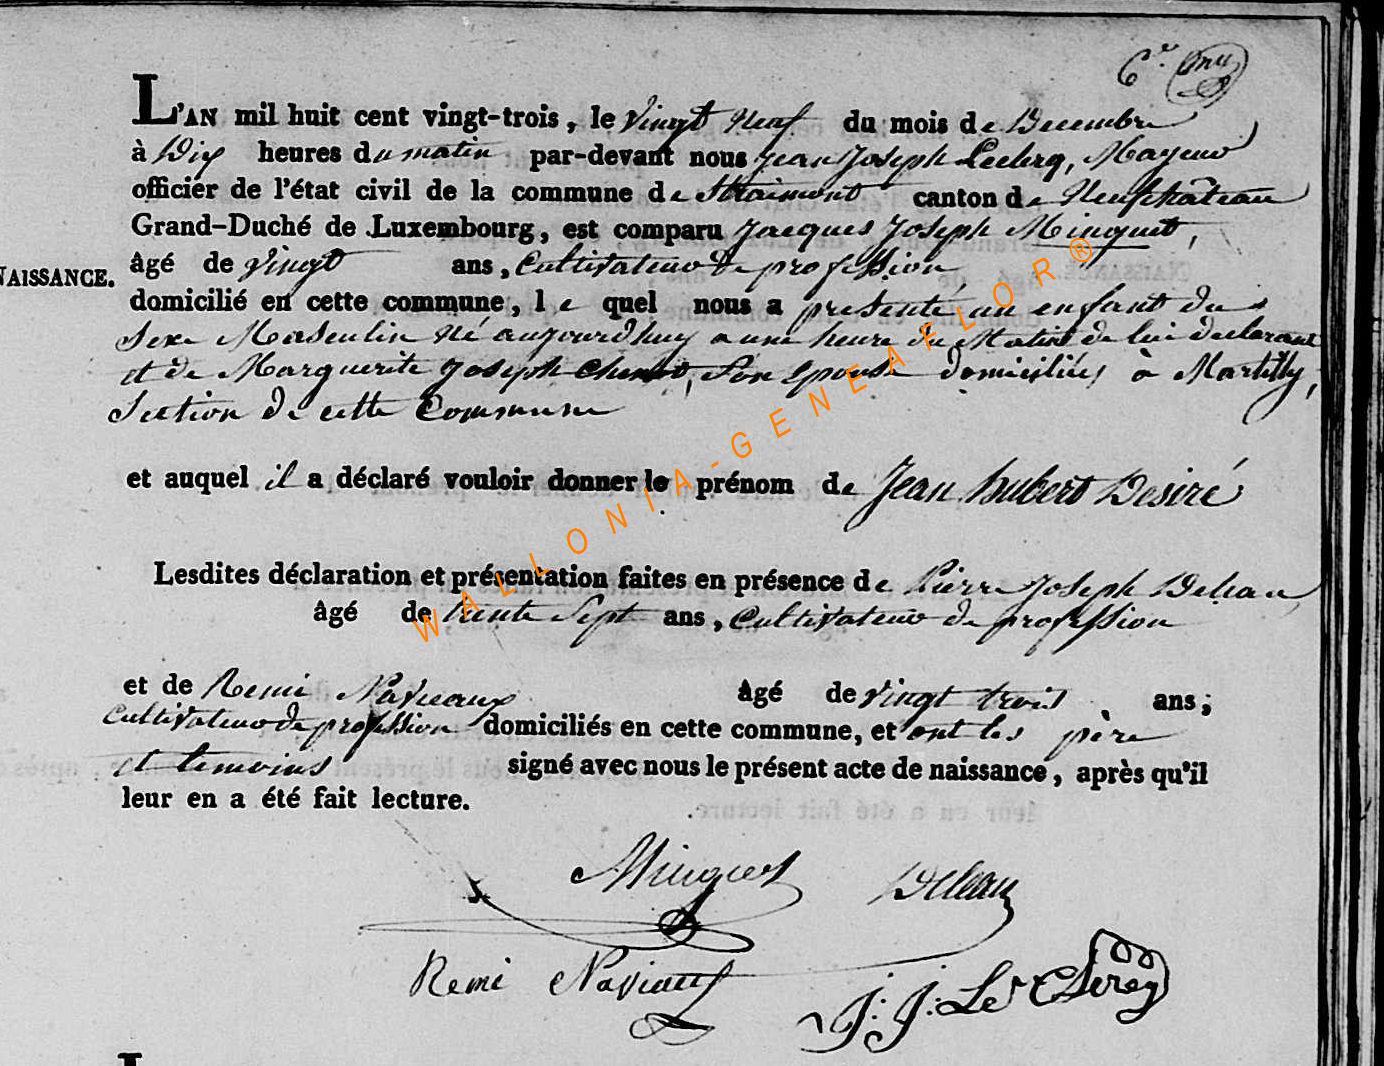 L'AN mil huit cent vingt-trois, le Vingt Neuf du mois de Decembre
à Dix heures du matin par-devant nous Jean Joseph Leclerq, Mayeur
officier de l'état civil de la commune de Straimont canton de Neufchâteau
Grand-Duché de Luxembourg, est comparu Jacques Joseph Minguet,
NAISSANCE.
âgé de Vingt ans, Cultivateur de profession
domicilié en cette commune, le quel nous a presenté un enfant du
Sexe Masculin Né aujourdhuy a une heure du Matin de lui declarant
et de Marguerite Joseph Son Epouse Domiciliés à Martilly,
Section de cette Commune
et auquel il a déclaré vouloir donner le prénom de Jean hubert Desiré
Lesdites déclaration et présentation faites en présence de Pierre Joseph Deleau
âgé de trente Sept ans, Cultivateur de profession
et de Remi Naviaux âgé de vingt trois ans;
Cultivateur de profession domiciliés en cette commune, et ont les père
et temoins signé avec nous le présent acte de naissance, après qu'il
leur en a été fait lecture.
Minguet Deleau
Remi Naviaux J: J: Le Clerq
WALLONIA-GENEAFLOR®